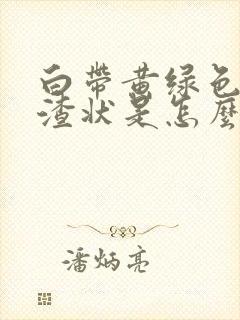 白帶黄绿色
渣状是怎麼
潘炳亮